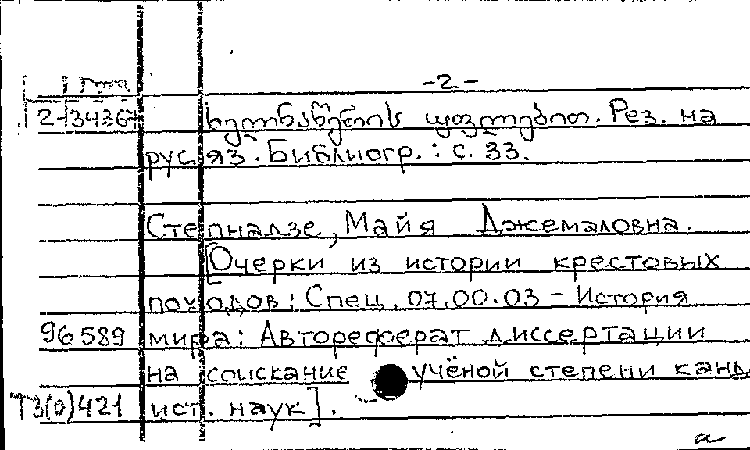 -2-
2-34367 ხელნაწერის უფლებით. Рез. на
рус. яз. Библиогр.: с. 33.
Степнадзе, Майя Джемаловна.
[Очерки из истории крестовых
походов: Спец. 07.00.03 – История
96589 мира: Автореферат диссертации
на соискание учёной степени канд.
Т3(0)421 ист. наук].